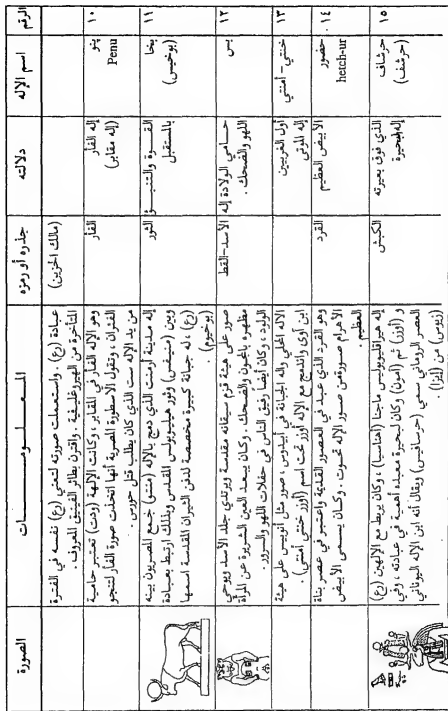 الرقم
اسم الإله
دلالته
جذره أو رمزه
المعلومات
الصورة
(مالك الحزين)
عبادة (رع). واستعملت صورته لتعني (رع) نفسه في الفترة
المتأخرة من الهيروغليفية. واقترن بطائر الفينيق المعروف.
١٠
پنو
Penu
إله الفأر
(إله مقابر)
الفأر
وهو الإله الفأر في المقابر، وكانت الإلهة (ومت) تعتبر حامية
الفئران، وتقول الأسطورة المصرية أنها اتخذت صورة الفأر لتنجو
من يد الإله ست الذي كان يطلب قتل حورس.
١١
بخا
(بوخيس)
القوة والتنبؤ
بالمستقبل
الثور
إله مدينة أرمنت الذي دمج بالإله (منتو) جمع المصريون بينه
وبين (منيفس) وثور هيليوبوليس المقدس وبذلك ارتبط بعبادة
(رع)، له جبانة كبيرة مخصصة لدفن الثيران المقدسة اسمها
(بوخيوم).
١٢
بس
حامي الولادة إله
اللهو والضحك.
الأسد-القط
صور على هيئة قزم سيقانه مقدسة ويرتدي جلد الأسد ويوحي
مظهره بالمجون والضحك، وكان يبعد العين الشريرة عن المرأة
الولود، وكان أيضاً رفيق الناس في حفلات اللهو والسرور.
١٣
خنتي - أمنتي
أول الغربيين
إله الموتى
الإله المحلي وإله الجبانة في أبيدوس، صور مثل أنوبيس على هيئة
ابن آوى واندمج مع الإله أوزر تحت اسم (أوزر خنتي أمنتي).
١٤
حضور
hetch-ur
الأبيض العظيم
القرد
وهو القرد الذي عبد في العصور القديمة واعتبر في عصر بناة
الأهرام صورة من صور الإله تحوت، وكان يسمى الأبيض
العظيم.
١٥
حرشاف
(حرشف)
الذي فوق بحيرته
إله البحيرة
الكبش
إله هيراقليوبوليس ماجنا (اهناسيا)، وكان يربط مع الإلهين (رع)
و (أوزر) ثم (آمون) وكان لبحيرة معبده أهمية في عبادته، وفي
العصر الروماني سمي (حرسافيس) ويقال أنه ابن الإله اليوناني
(زيوس) من (ألترا).